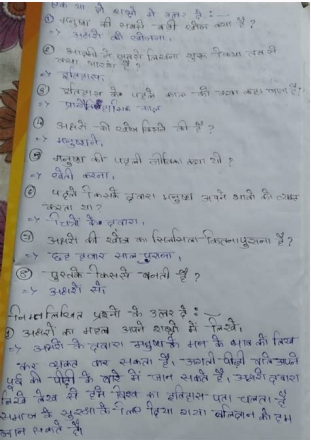 एक या दो शब्दों में उत्तर दें :—
① मनुष्य की सबसे बड़ी खोज क्या है ?
=> अक्षरों की खोज।
② आदमी ने जबसे लिखना शुरू किया तब से क्या आरंभ है ?
=> इतिहास,
③ इतिहास के पहले काल को क्या कहा जाता है ?
=> प्रागैतिहासिक काल
④ अक्षरों की खोज किसने की है ?
=> मनुष्य ने,
⑤ मनुष्य की पहली जीविका क्या थी ?
=> खेती करना,
⑥ पहले किसके द्वारा मनुष्य अपने भावों को व्यक्त करता था ?
=> चित्रों के द्वारा,
⑦ अक्षरों की खोज का सिलसिला कितना पुराना है ?
=> छह हजार साल पुराना,
⑧ पुस्तकें किससे बनती हैं ?
=> अक्षरों से।
निम्नलिखित प्रश्नों के उत्तर दें :
① अक्षरों का महत्व अपने शब्दों में लिखें,
=> अक्षरों के द्वारा मनुष्य के मन के भाव को लिख
कर व्यक्त कर सकता है, अगली पीढ़ी को अपने
पूर्व की पीढ़ी के बारे में जान सकते हैं, अक्षरों द्वारा
लिखे लेख से हमें विश्व का इतिहास पता चलता है
समाज के सुरक्षा के दिया गया बलिदान को हम
जान सकते हैं।